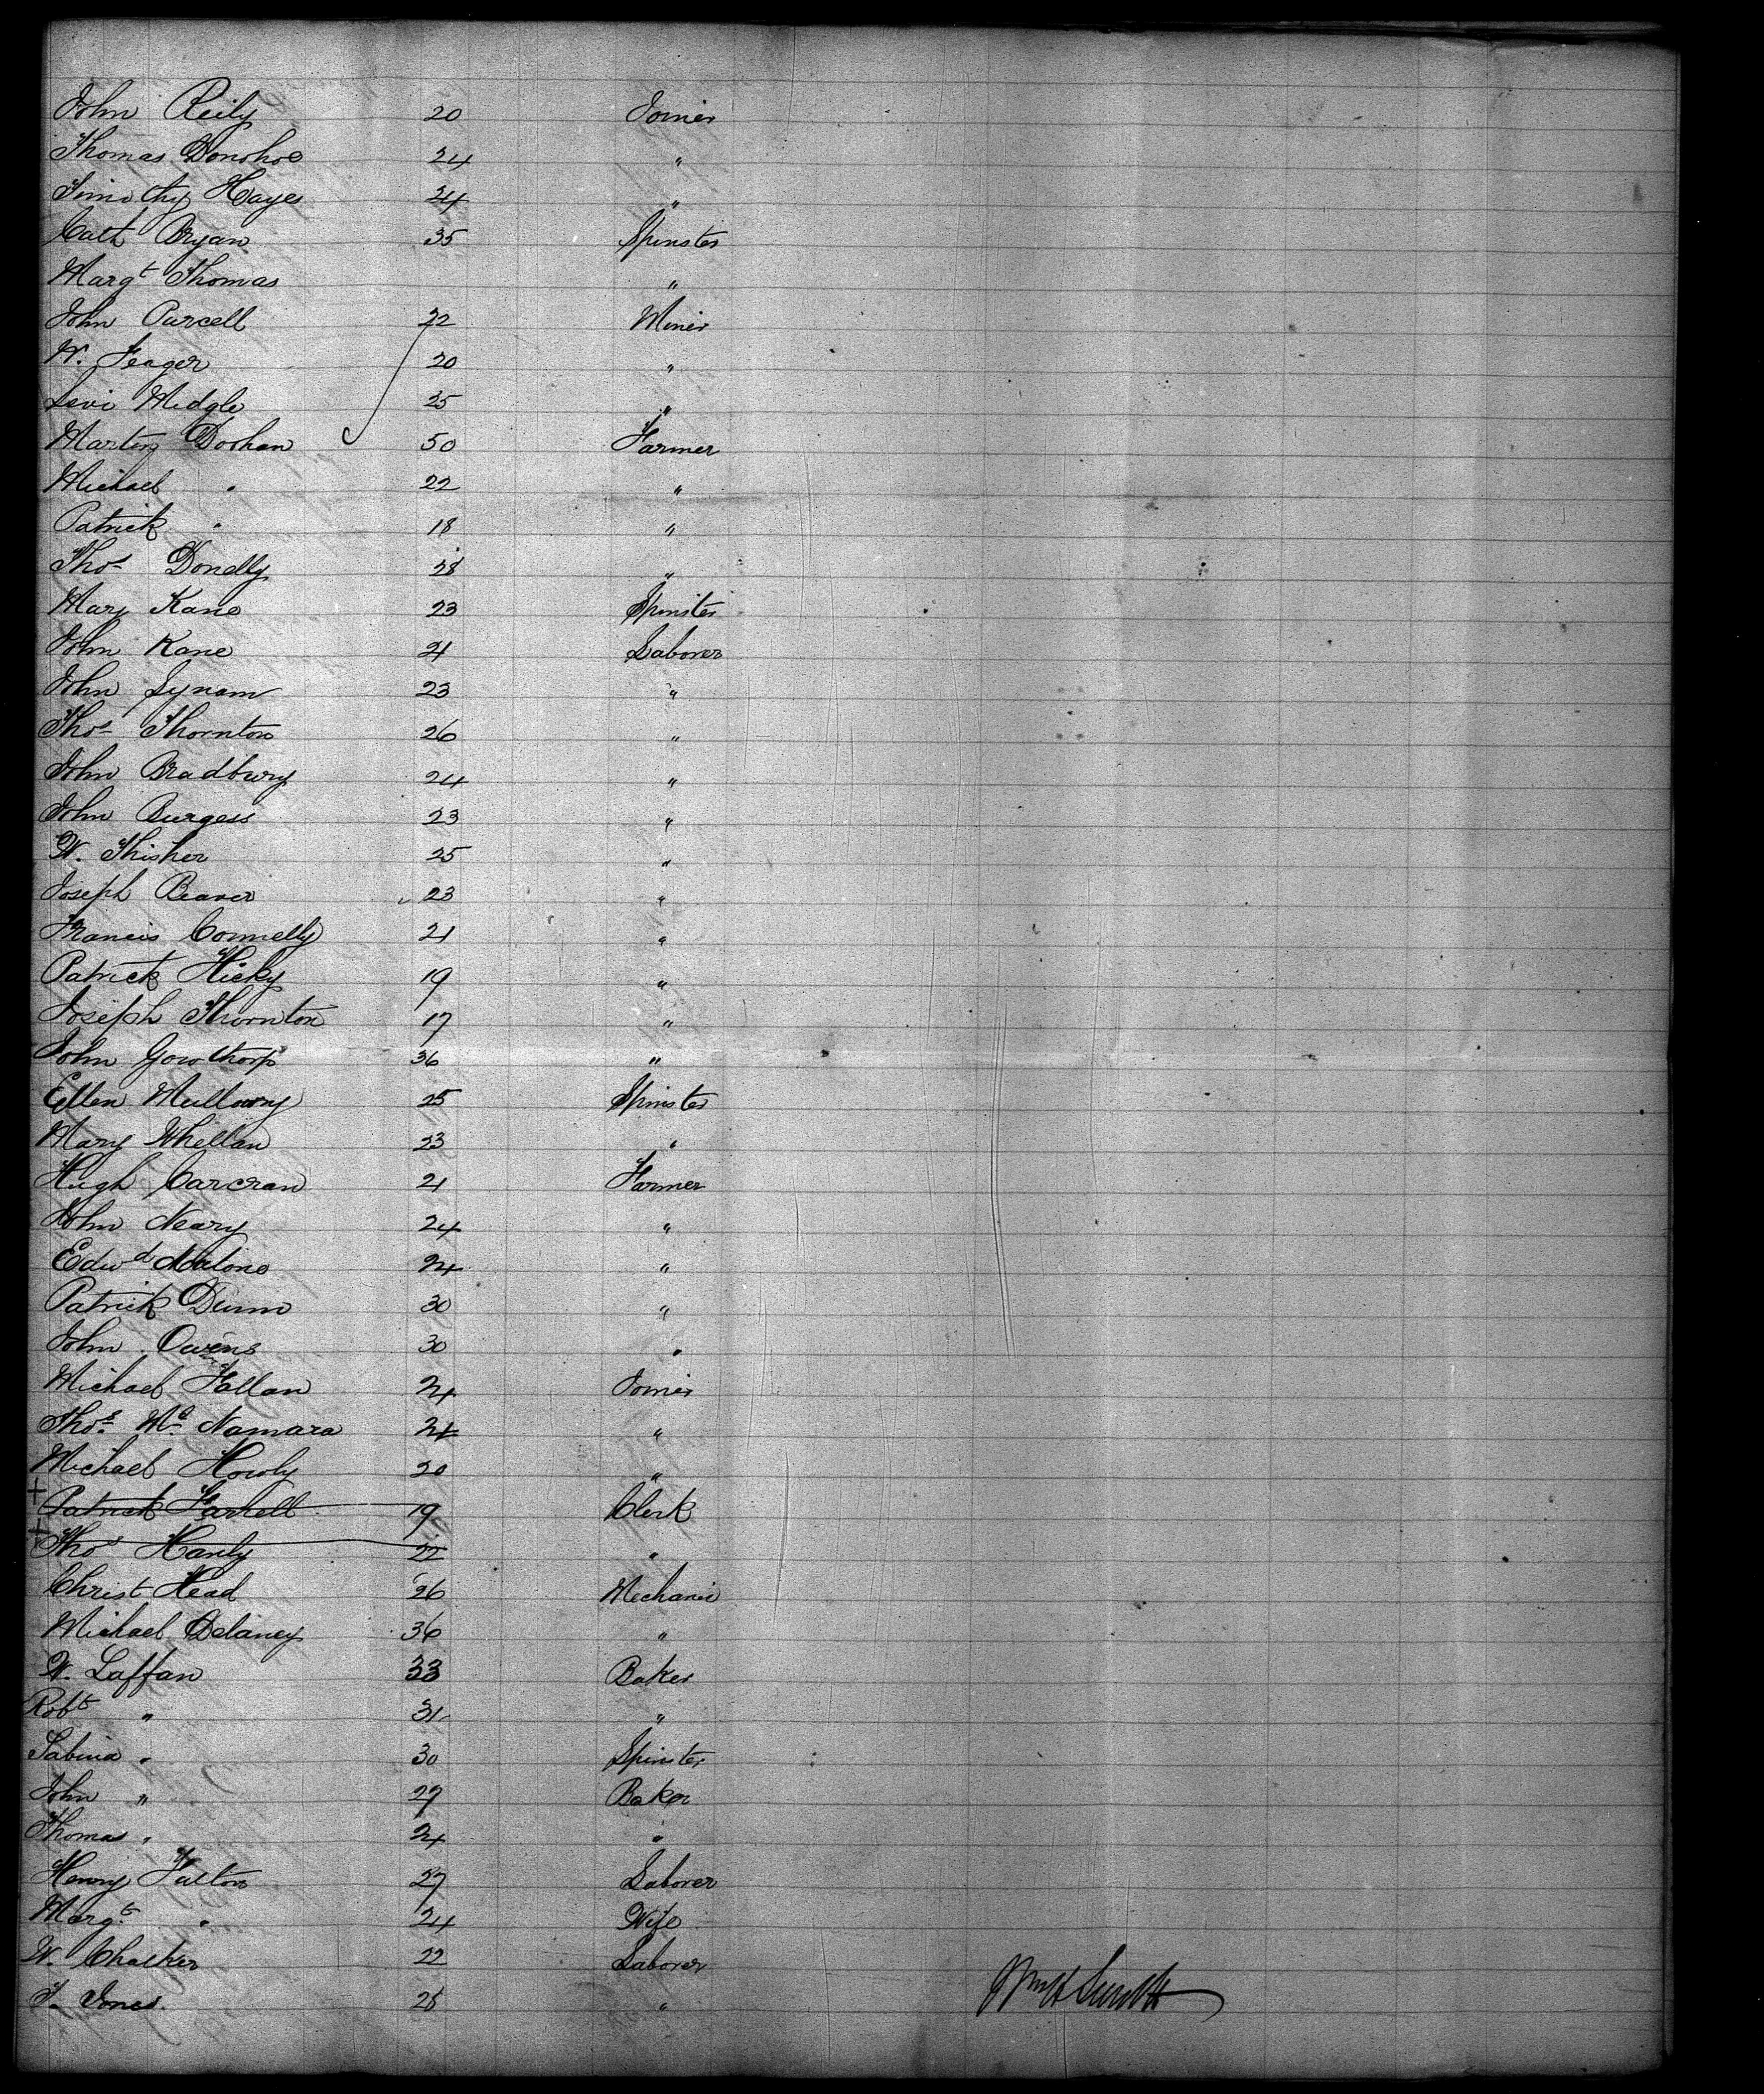 John Reily 20 Joiner
Thomas Donohoe 24 "
Timothy Hayes 24 "
Cath Bryan 35 Spinster
Margt Thomas "
John Purcell 22 Miner
W. Feager 20 "
Levi Midgle 25 "
Martin Doohan 50 Farmer
Michael " 22 "
Patrick " 18 "
Thos Donelly 28 "
Mary Kane 23 Spinster
John Kane 21 Laborer
John Lynam 23 "
Thos Thornton 26 "
John Bradbury 24 "
John Burgess 23 "
W. Thisher 25 "
Joseph Beaver 23 "
Francis Connelly 21 "
Patrick Hicky 19 "
Joseph Thornton 17 "
John Gowthorp 36 "
Ellen Mullowny 25 Spinster
Mary Whellan 23 "
Hugh Carcran 21 Farmer
John Neary 24 "
Edwd Malone 24 "
Patrick Dunn 30 "
John Owens 30 "
Michael Fallan 24 Joiner
Thos Mc Namara 24 "
Michael Howly 20 "
+ Patrick Farrell 19 Clerk
+ Thos Hanly 22 "
Christ Head 26 Mechanic
Michael Delaney 36 "
W. Laffan 33 Baker
Robt " 31 "
Sabina " 30 Spinster
John " 27 Baker
Thomas " 24 "
Henry Fulton 27 Laborer
Margt " 24 Wife
W. Chalker 22 Laborer
T. Jones. 25 "